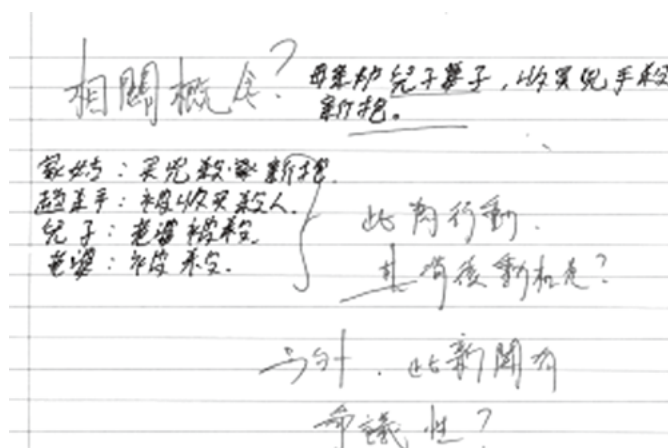 相關概念?
母為护兒子妻子,收买兇手殺
新抱。
家姑:买兇殺新抱.
趙杀手:被收买殺人.
兒子:老婆被殺.
老婆:被杀.
此為行動.
其背後動機是?
另外.此新聞有
爭議性?